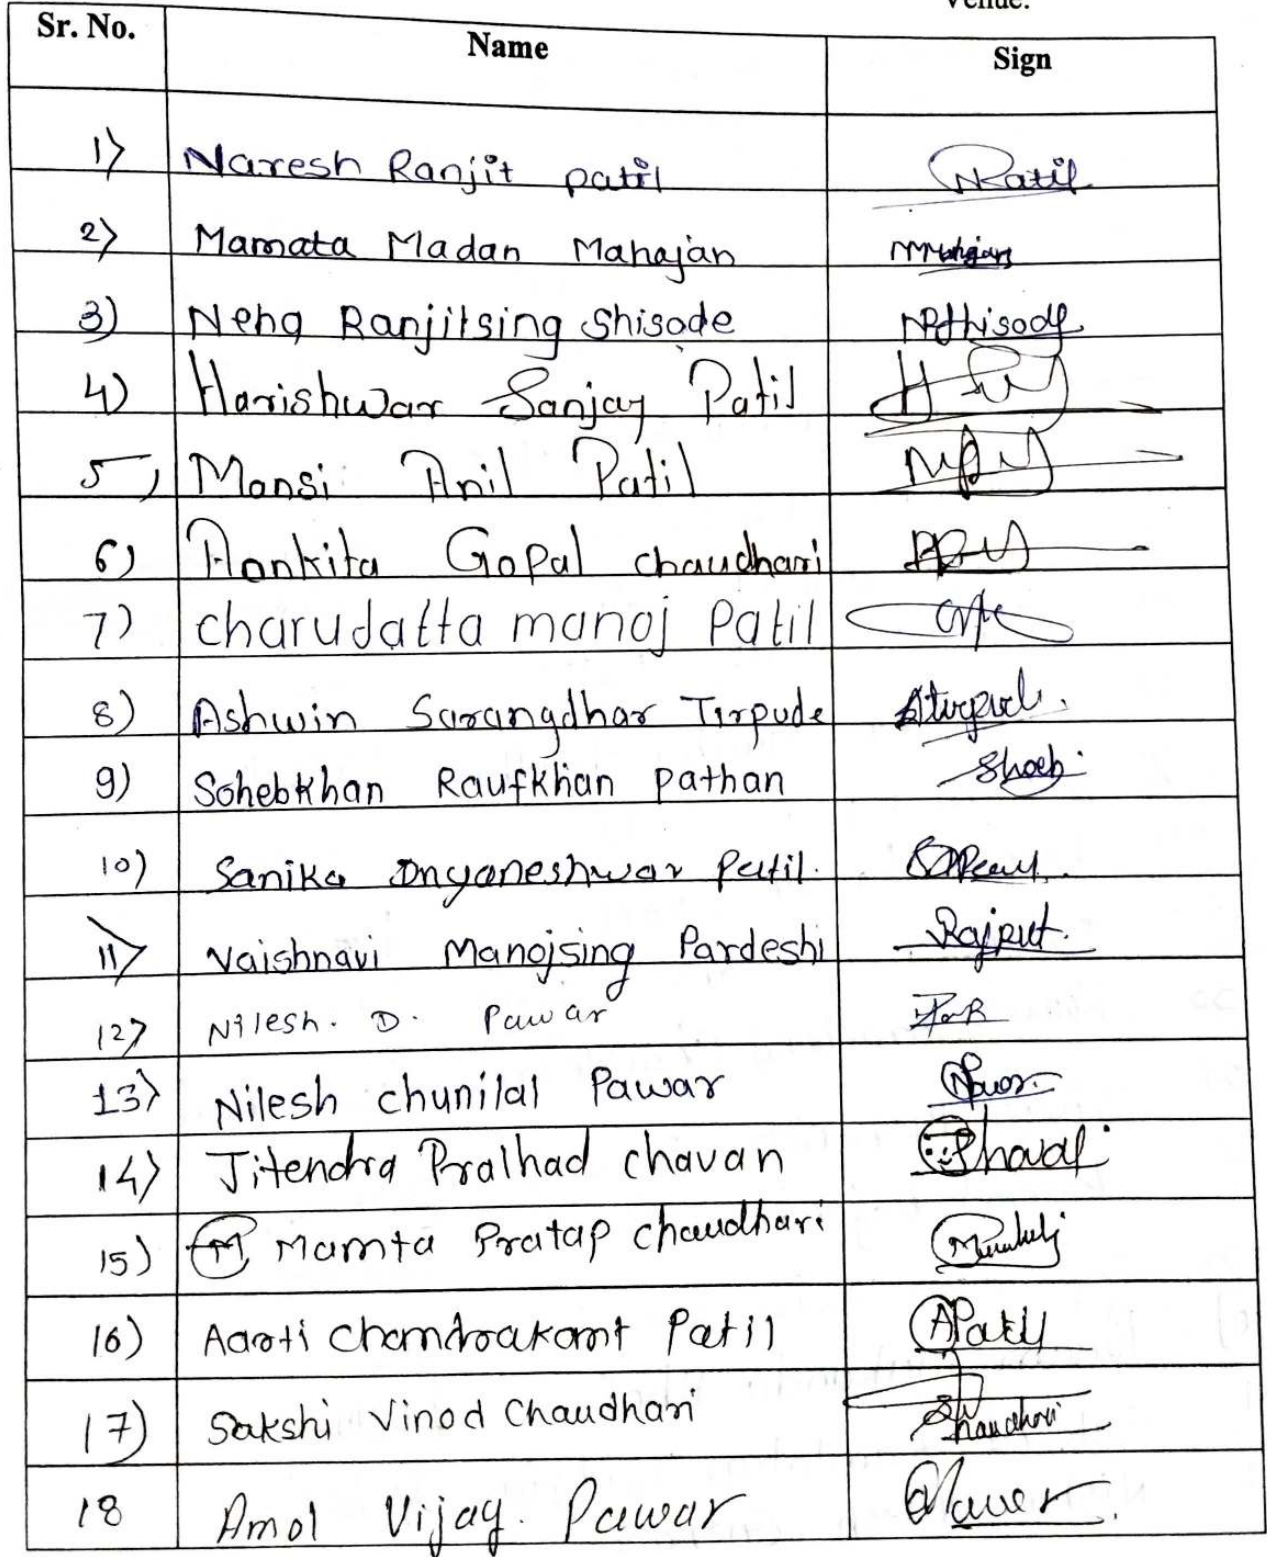 Venue:
Sr. No. Name Sign
1) Naresh Ranjit patil NPatil
2) Mamata Madan Mahajan
3) Neha Ranjitsing Shisode NRShisode
4) Harishwar Sanjay Patil
5) Mansi Anil Patil
6) Aankita Gopal chaudhari
7) charudatta manoj Patil
8) Ashwin Sarangdhar Tirpude
9) Sohebkhan Raufkhan pathan Shoeb
10) Sanika Dnyaneshwar Patil.
11) Vaishnavi Manojsing Pardeshi Rajput.
12) Nilesh. D. Pawar
13) Nilesh chunilal Pawar
14) Jitendra Pralhad chavan
15) M Mamta Pratap chaudhari
16) Aarti Chandrakant Patil APatil
17) Sakshi Vinod Chaudhari Chaudhari
18 Amol Vijay. Pawar